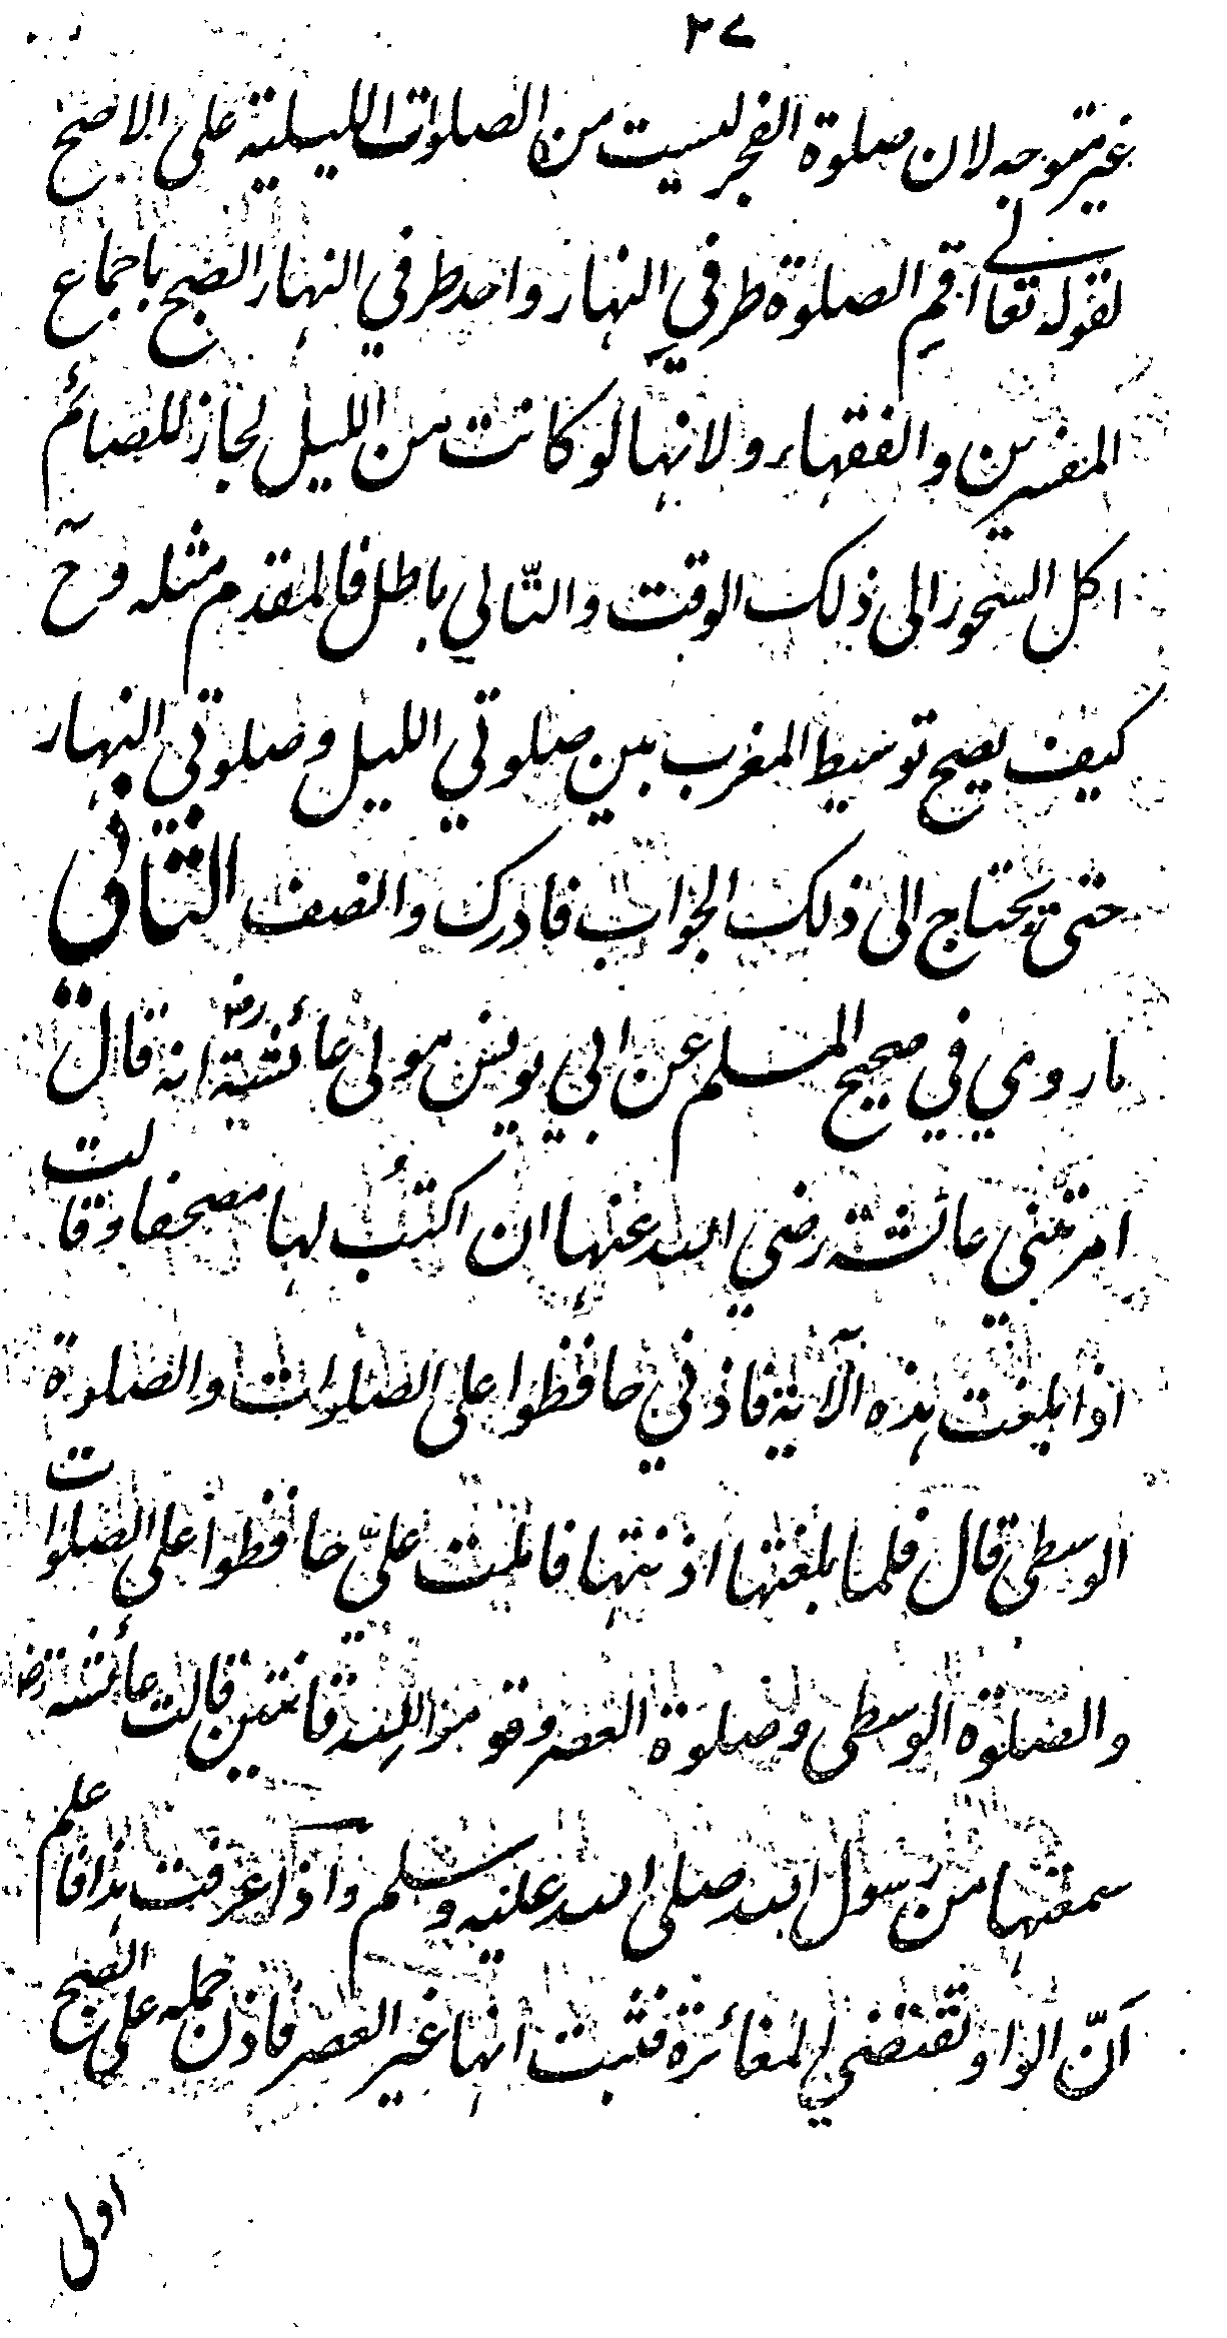 ٣٤
غير متوجه لان صلوة الفجر ليست من الصلوات الليلية على الاصح
لقوله تعالى اقمِ الصلوة طرفيِ النهار واحد طرفي النهار الصبح باجماع
المفسرين والفقهاء ولانها لو كانت من الليل لجاز للصائم
اكل السحور الى ذلك الوقت والتّالي باطل فالمقدم مثله وحٓ
كيف يصح توسيط المغرب بين صلوتي الليل وصلوتي النهار
حتى يحتاج الى ذلك الجواب فادرك وانصف الثاني
ما روي في صحيح المسلم عن ابي يونس مولى عائشة رض انه قال
امرتني عائشة رضي الله عنها ان اكتبُ لها مصحفا وقالت
اذا بلغت هذه الآية فاذني حافظوا على الصلوات والصلوة
الوسطى قال فلما بلغتها اذنتها فاملت عليّ حافظوا على الصلوات
والصلوة الوسطى وصلوة العصر وقوموا لله قانتين قالت عائشة رض
سمعتها من رسول الله صلى الله عليه وسلم واذا عرفت هذا فاعلم
انّ الواو تقتضي المغائرة فثبت انها غير العصر فاذن حمله على الصبح
اولى